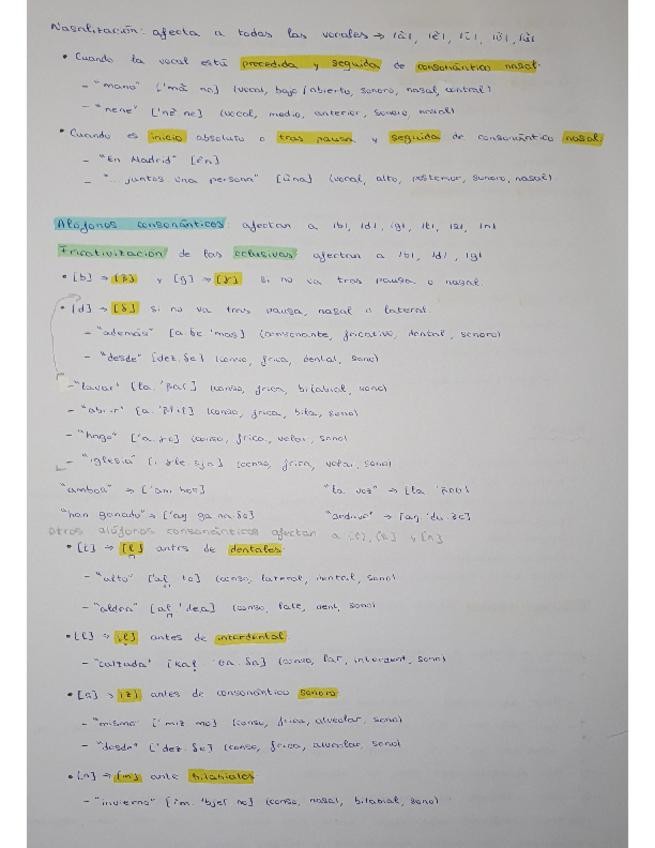 Nasalización: afecta a todas las vocales → /ã/, /ẽ/, /ĩ/, /õ/, /ũ/
• Cuando la vocal está precedida y seguida de consonántico nasal
- "mano" ['mã no] (vocal, bajo/abierto, sonoro, nasal, central)
- "nene" ['nẽ ne] (vocal, medio, anterior, sonoro, nasal)
• Cuando es inicio absoluto o tras pausa y seguida de consonántico nasal
- "En Madrid" [ẽn]
- "... juntos. Una persona" [ũna] (vocal, alto, posterior, sonoro, nasal)
Alófonos consonánticos: afectan a /b/, /d/, /g/, /l/, /s/, /n/
Fricativización de las oclusivas afectan a /b/, /d/, /g/
• [b] → [β] y [g] → [ɣ] si no va tras pausa o nasal.
• [d] → [δ] si no va tras pausa, nasal o lateral.
- "además" (consonante, fricativo, dental, sonoro)
- "desde" [dez.δe] (conso, frica, dental, sono)
- "lavar" [la.'βar] (conso, frica, bilabial, sono)
- "abrir" (conso, frica, bila, sono)
- "hago" ['a.ɣo] (conso, frica, velar, sono)
- "iglesia" (conso, frica, velar, sono)
"ambos" → "la voz" →
"han ganado" →
otros alófonos consonánticos afectan a
• [l] → antes de dentales
- "alto" (conso, lateral, dental, sono)
- "aldea" (conso, late, dent, sono)
• [l] → antes de interdental
- "calzada" (conso, lat, interdent, sono)
• [s] → [z] antes de consonántico sonoro
- "mismo" ['miz mo] (conso, frica, alveolar, sono)
- "desde" ['dez.δe] (conso, frica, alveolar, sono)
• [n] → [m] ante bilabiales
- "invierno" (conso, nasal, bilabial, sono)